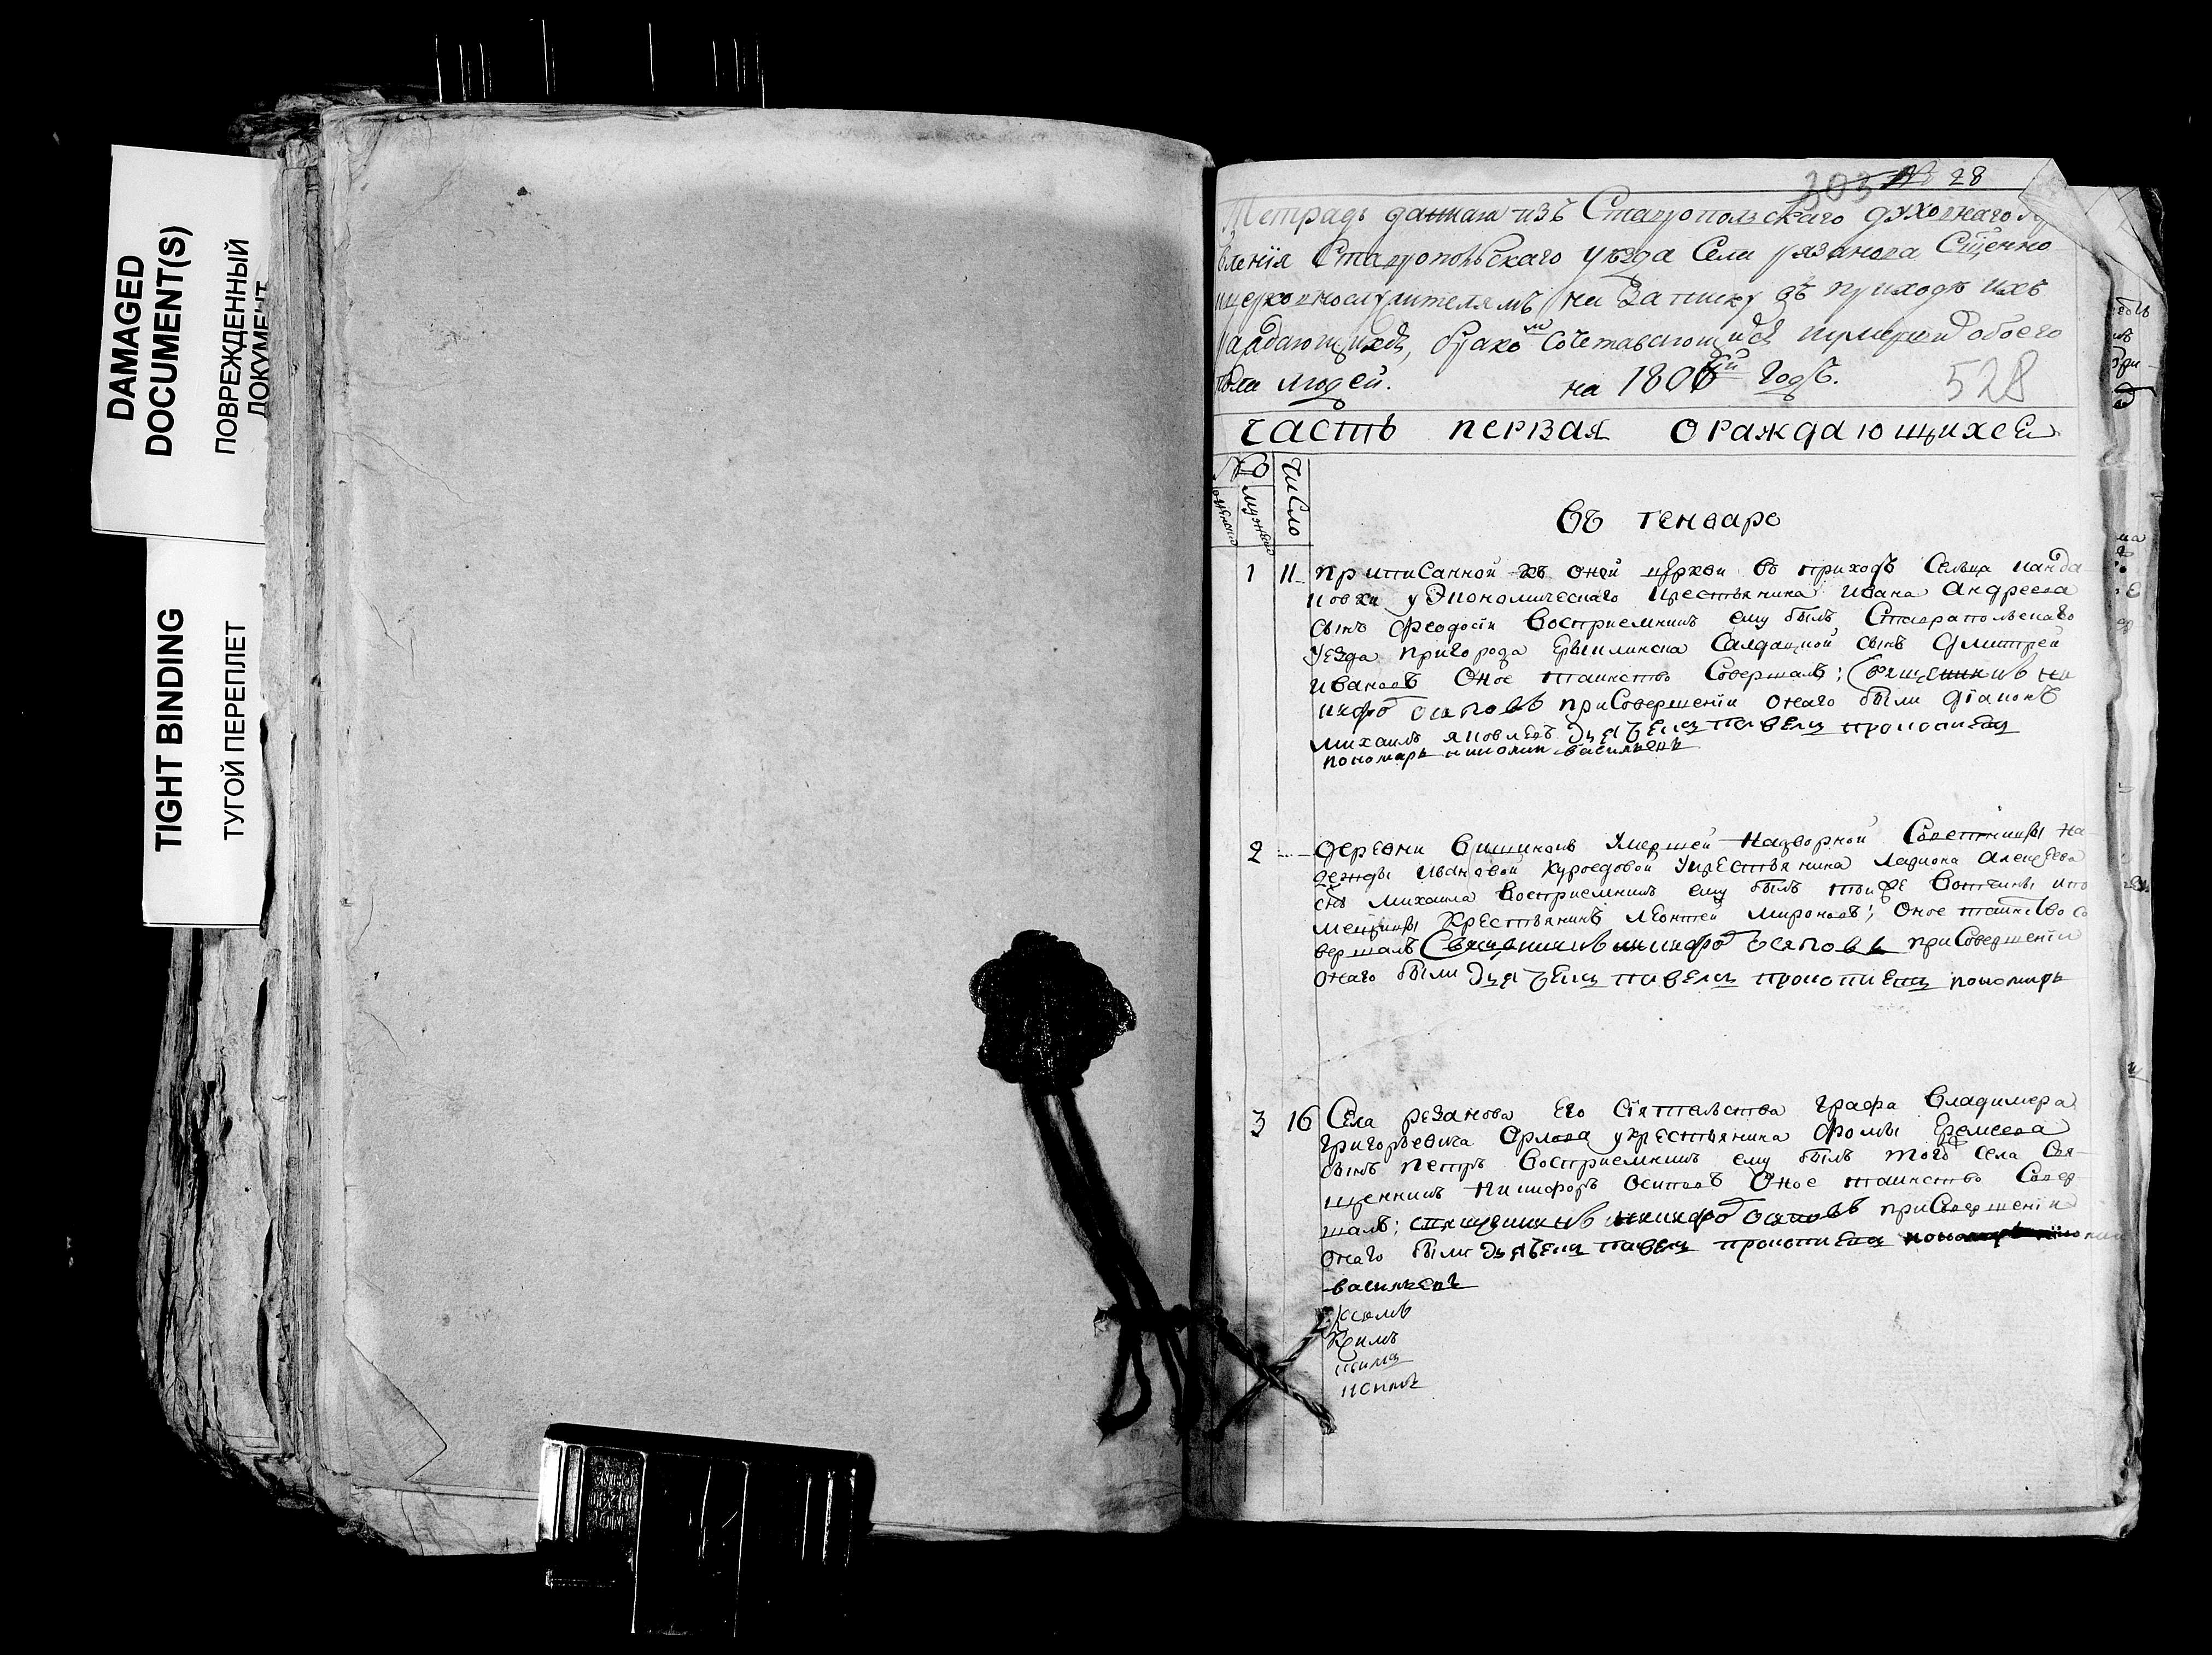 DAMAGED
DOCUMENT(S)
ПОВРЕЖДЕННЫЙ
ДОКУМЕНТ
TIGHT BINDING
ТУГОЙ ПЕРЕПЛЕТ
303 № 28
Тетрадь данная изъ Ставропольскаго духовнаго
вленія Ставропольскаго уѣзда Села рязанова Сщенно
церковнослужителямъ на Записку въ приходѣ ихъ
ражdaющихся, бракомъ Сочетавающихся обоего
пола людей. на 1806 Годъ. 528
часть первая оражdaющихся
№ число
въ генваре
1 11 приписанной къ оной церкви въ приходѣ Сельца
новки у Экономическаго крестьянина Ивана Андреева
сынъ феодосiи Восприемникъ ему былъ Ставропольскаго
Уезда пригорода Ерыклинска Салдацкой сынъ Дмитрей
Ивановъ Оное таинство Совершалъ; Священникъ ни
кифоръ осиповъ приСовершенiи онаго были дiаконъ
михаилъ яковлевъ дьячекъ павелъ прокопиевъ
пономарь николаи васильевъ
2 деревни Вишинокъ Умершей Надворной Советницы на
дежды Ивановой Куроедовой Укрестьянина лариона алексеева
снъ михаила Восприемникъ ему былъ той же Вотчины и по
мещицы Крестьянинъ леонтей мироновъ; Оное таинство со
вершалъ Священникъ никифоръ осиповъ приСовершенiи
онаго были дьячекъ павелъ прокопиевъ пономарь
3 16 Села резанова Его Сiятельства Графа Владимера
Григорьевича Орлова укрестьянина фомы Еремеева
сынъ петръ Восприемникъ ему былъ того села Свя
щенникъ Никифоръ Осиповъ Оное таинство Совер
шалъ; священникъ никифоръ осиповъ приСовершенiи
онаго были дьячекъ павелъ прокопиевъ
васильевъ